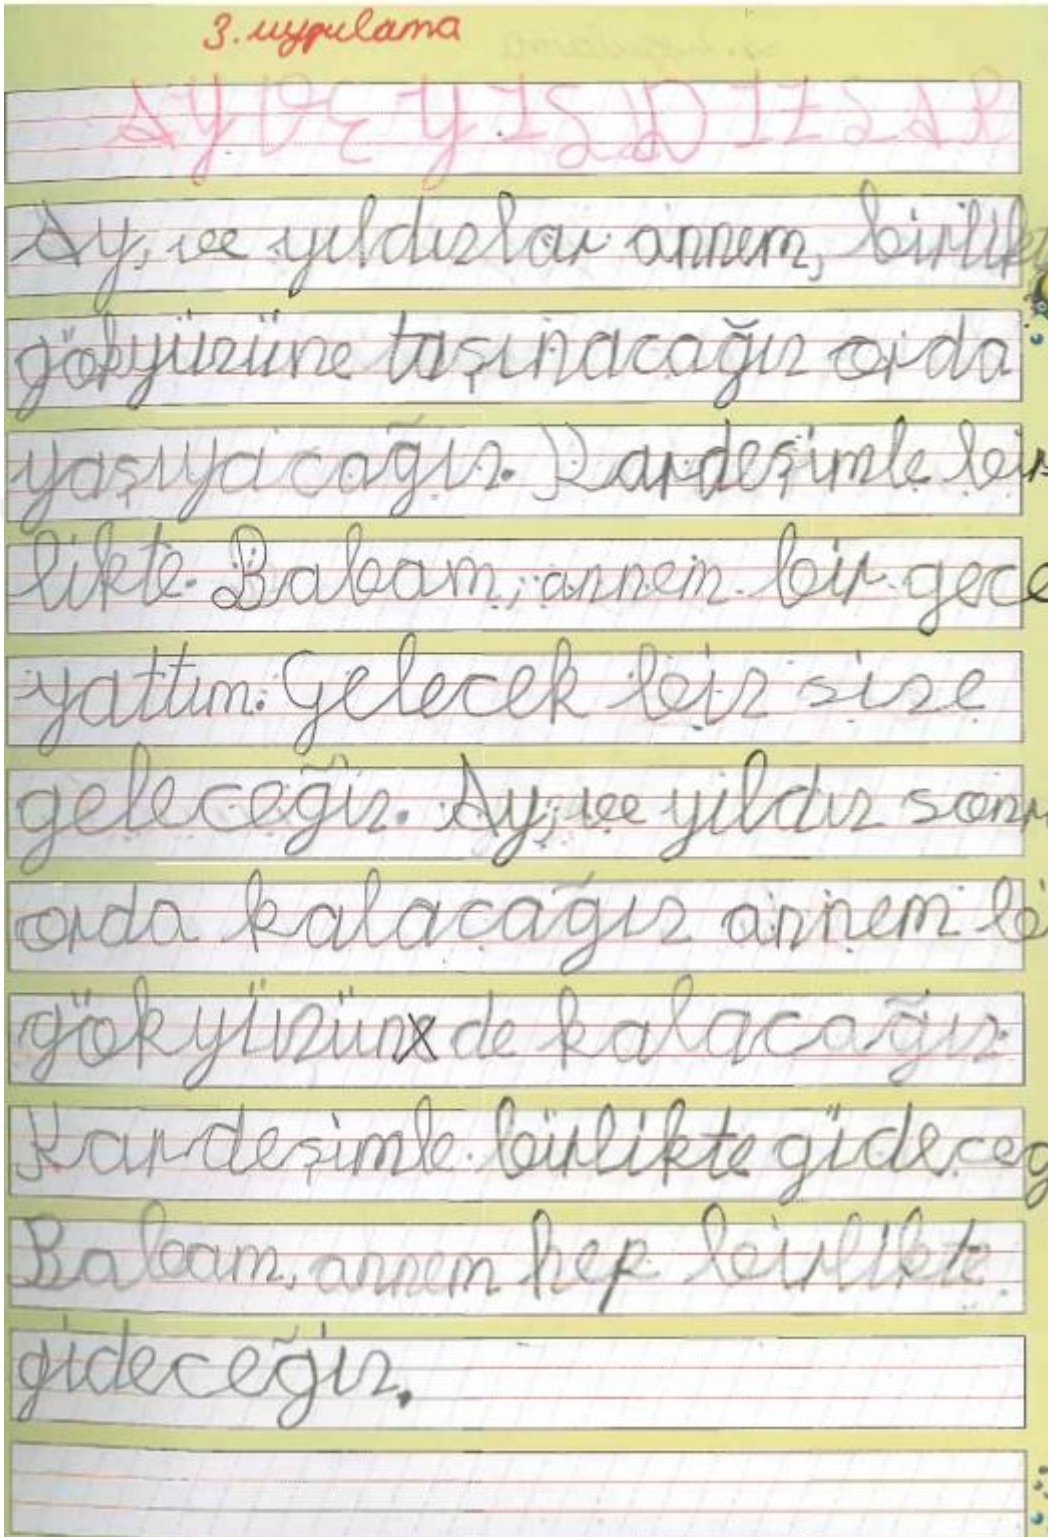 3. uygulama
AY VE YILDIZLAR
Ay, ve yıldızlar annem, birlikt
gökyüzüne taşınacağız orda
yaşıyacağız. Kardeşimle bir
likte. Babam, annem bir gece
yattım. Gelecek biz size
geleceğiz. Ay, ve yıldız sonr
orda kalacağız annem bi
gökyüzünxde kalacağız
Kardeşimle birlikte gideceğ
Babam, annem hep birlikte
gideceğiz.